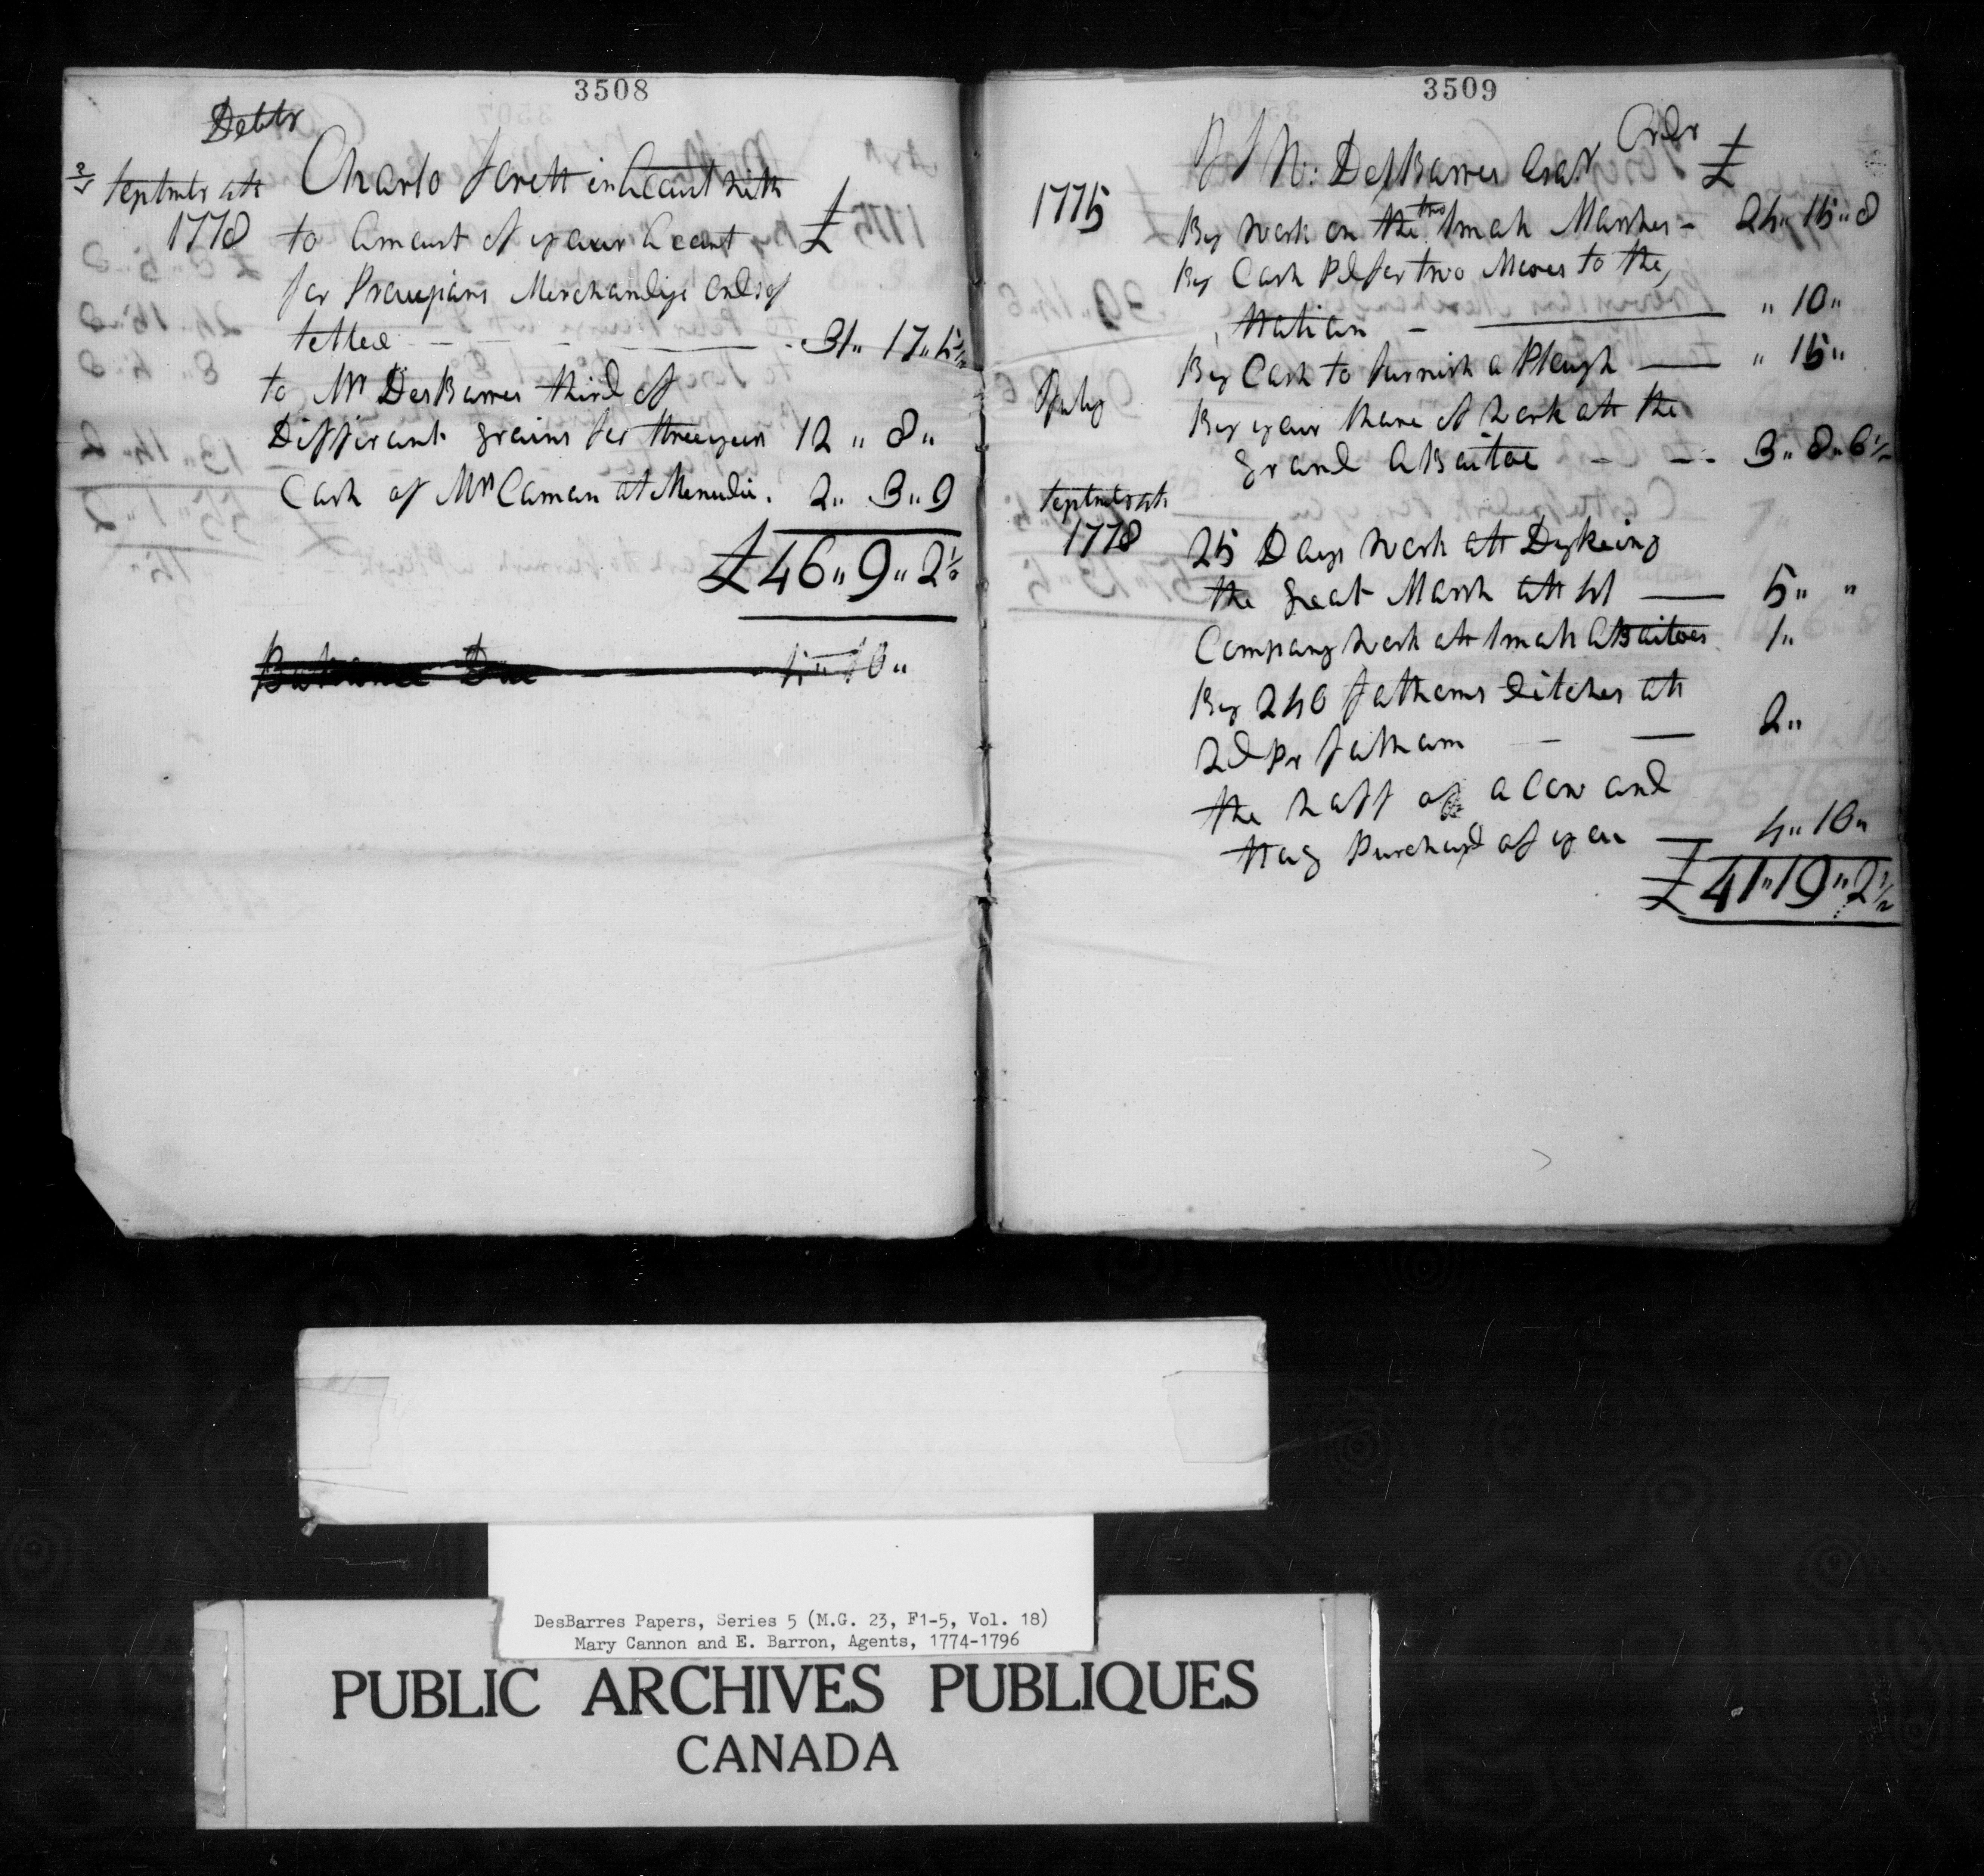 3508
Debtr
Septmbr ath Charlo forett in Account with
1778 to amount of your Account £
for Provisians Merchandize ends of
tetled 31,, 17,, 5½
to Mr DesBarres third of
Differant grains for three years 12 ,, 8 ,,
Cash of Mrs Canan at Menudie. 2,, 3,, 9
£46,, 9,, 2½
Ballance Due 4,, 10,,
3509
Crdr
J F W: DesBarres Esqr £
1775 By work on the two Smah Marshes - 24,, 15,, 8
By Cash Pd for two Moves to the
Station - ,, 10,,
By Cash to furnish a Plough ,, 15,,
July
By your share of Work ath the
grand ABaitoe 3,, 8,, 6½
Septmbr ath
1778 25 Days Work ath Dykeing
the great Marsh ath 4/ 5,, ,,
Company Work ath Smah ABaitoes 1,,
By 240 fathoms ditches ath
2d Pr fatham 2,,
the half of a Cow and
Hay Purchasd of you 4,, 10,,
£41,, 19,, 2½
DesBarres Papers, Series 5 (M.G. 23, F1-5, Vol. 18)
Mary Cannon and E. Barron, Agents, 1774-1796
PUBLIC ARCHIVES PUBLIQUES
CANADA